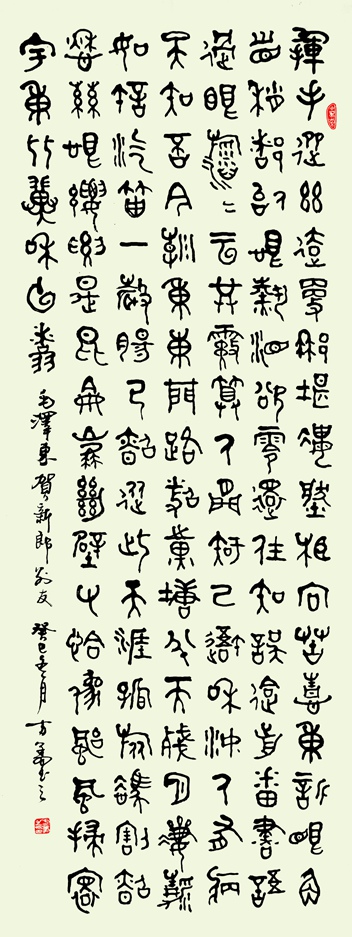 揮手從茲去更那堪淒然相向苦情重訴眼角
眉梢都似恨熱泪欲零還住知誤會前番書語
過眼滔滔雲共霧算人間知己吾和汝人有病
天知否今朝霜重東門路照橫塘半天殘月淒清
如許汽笛一聲腸已斷從此天涯孤旅憑割斷
愁絲恨縷要似昆侖崩絕壁又恰像颱風掃寰
宇重比翼和雲翥 毛澤東賀新郎別友 癸巳 月 書之